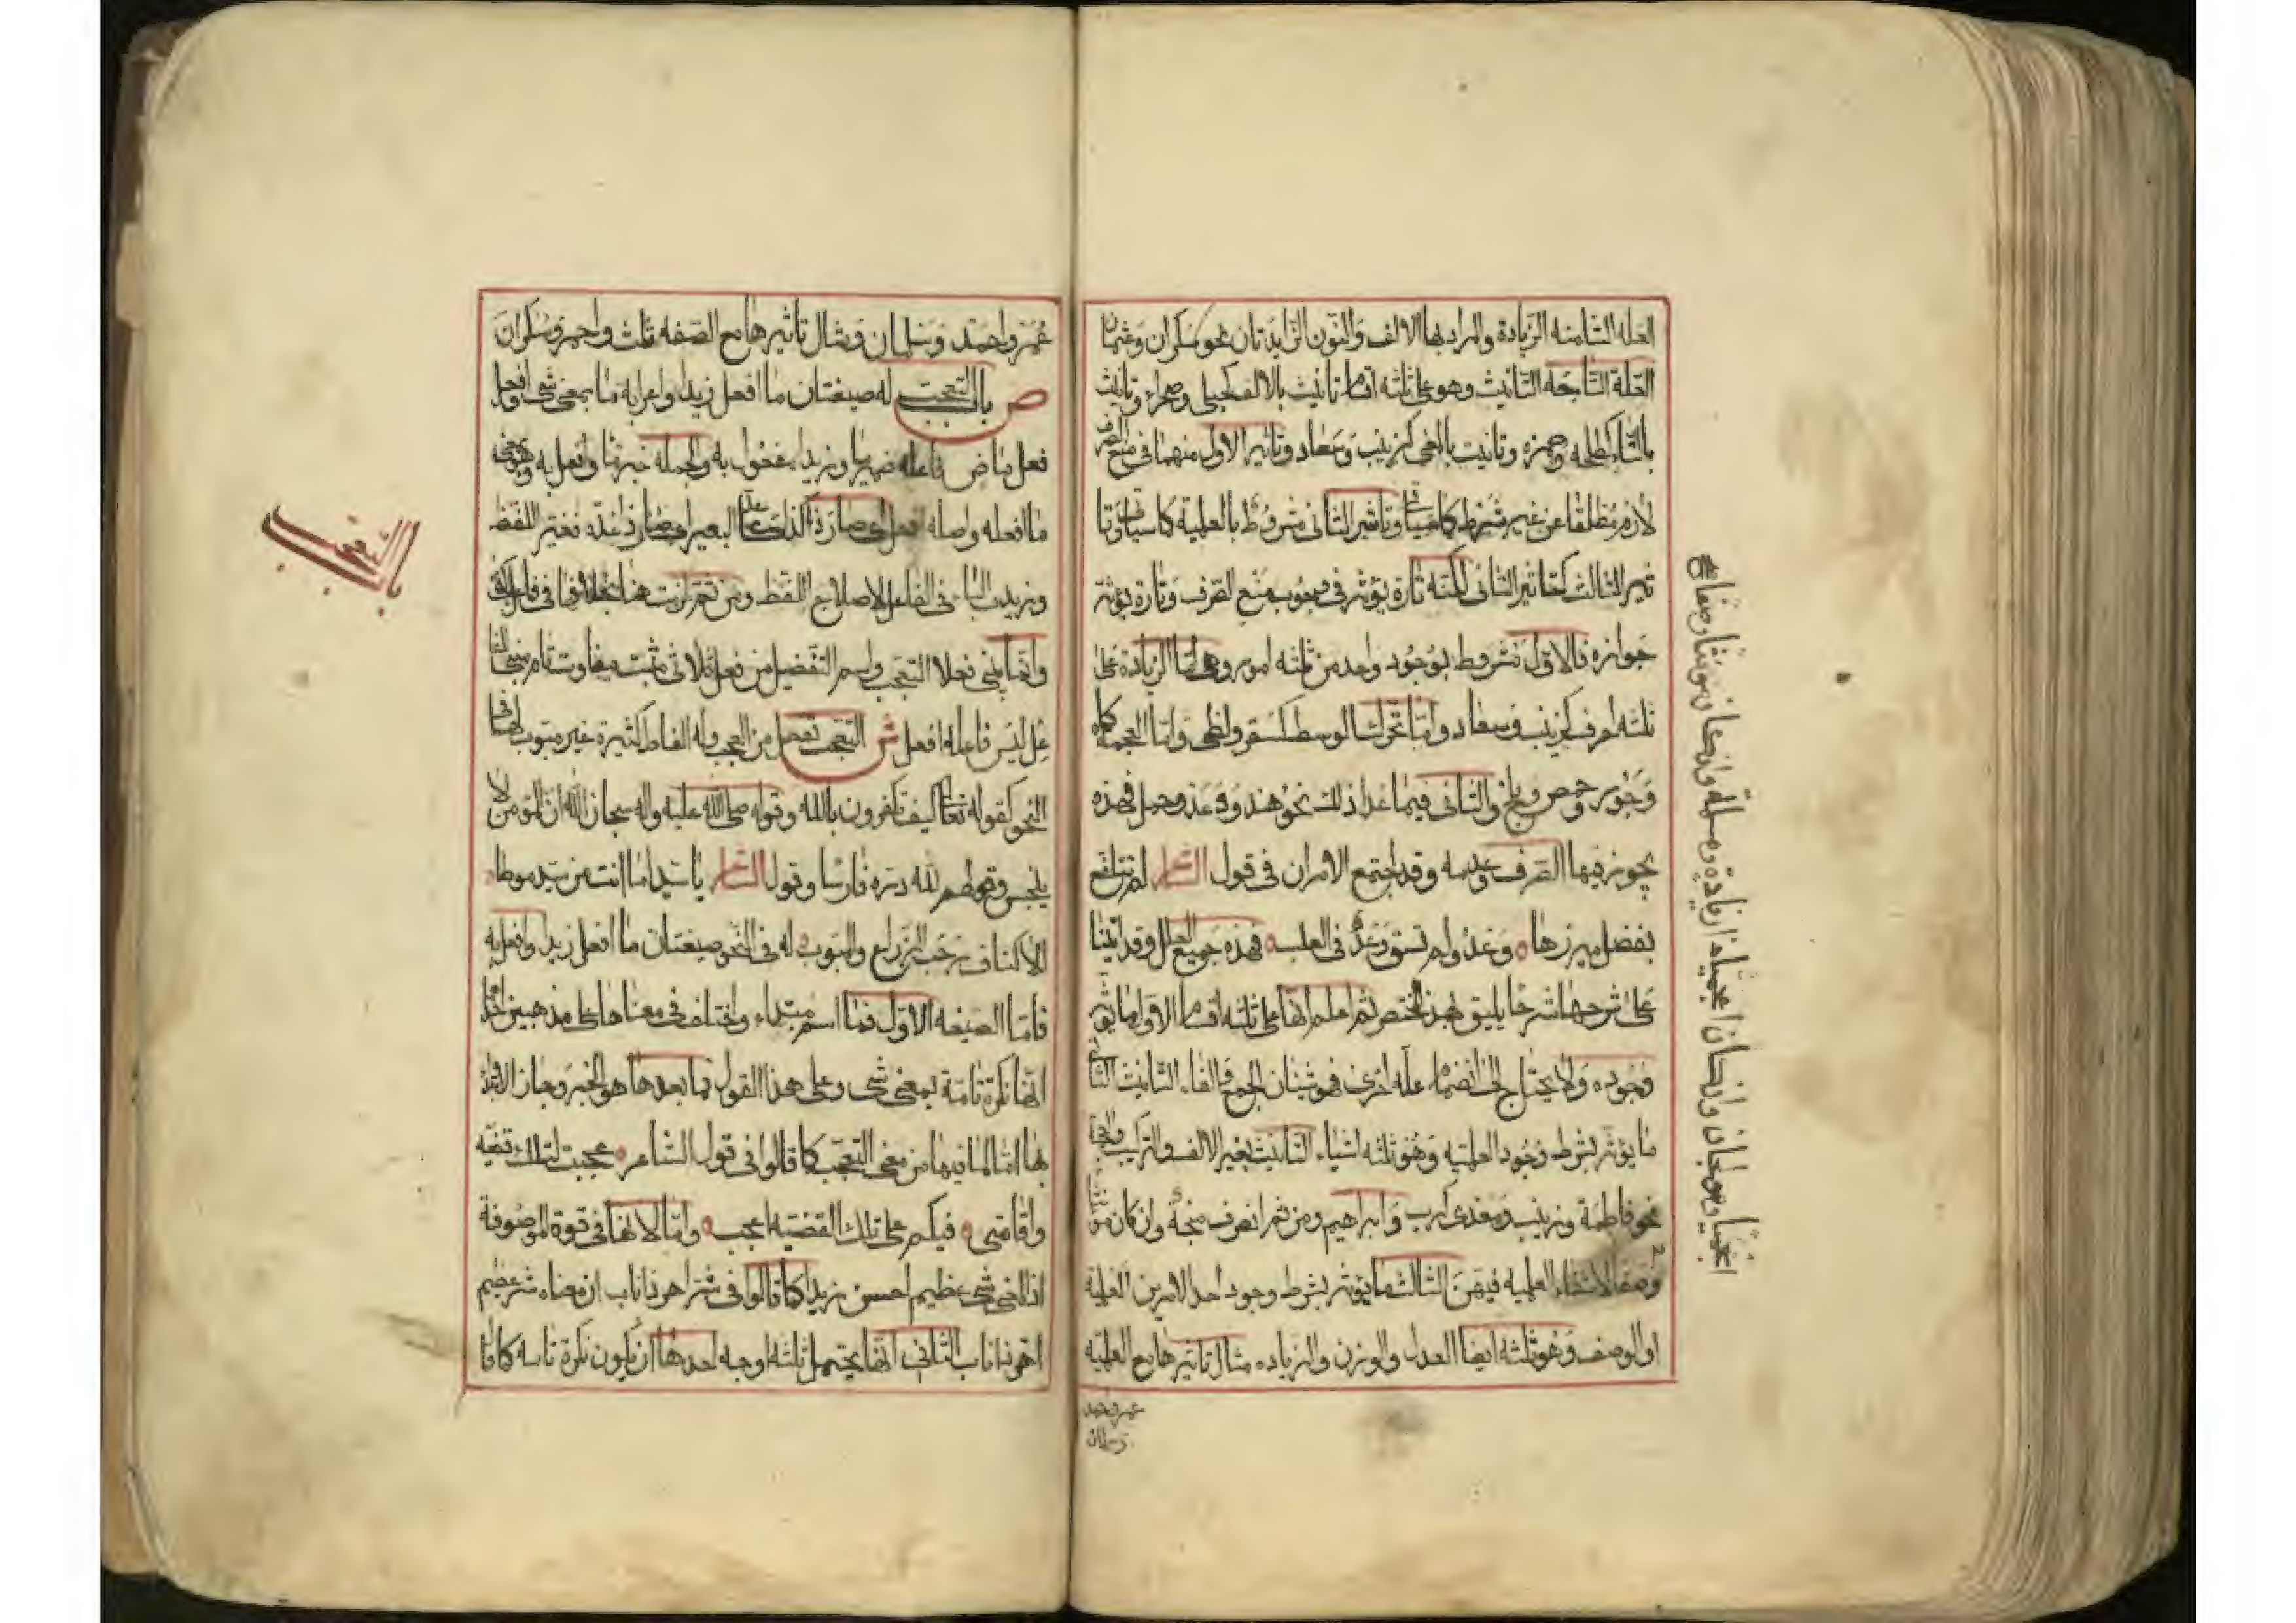 العله الثامنه الزيادة والمراد بها الالف والنون الزايدتان نحو سكران وعثمان
العلة التاسعه التانيث وهو على ثلثه اقسام تانيث بالالف كحبلى وصحراء وتانيث
بالتاء كطلحه وحمزه وتانيث بالمعنى كزينب وسعاد وتاثير الاول منهما فى منع الصرف
لازم مطلقا من غير شرط كما سياتى وتاثير الثانى مشروط بالعلمية كما سياتى وتا
ثير الثالث كتاثير الثانى لكنه تارة يؤثر فى وجوب منع الصرف وتارة يؤثر
جوازه فالاول مشروط بوجود واحد من ثلثه امور وهى اما الزيادة على
ثلثه احرف كزينب وسعاد واما تحرك الوسط كسقر ولظى واما العجمة كماه
وجور وحمص وبلخ والثانى فيما عدا ذلك نحو هند ودعد وجمل فهذه
يجوز فيها الصرف وعدمه وقد اجتمع الامران فى قول الشاعر لم تتلفع
بفضل ميزرها ٥ دعد ولم تسق دعد فى العلب ٥ فهذه جميع العلل وقد اتينا
على شرحها شرحا يليق بهذا المختصر ثم اعلم انها على ثلثه اقسام الاول ما يؤثر
وجوده ولا يحتاج الى انضمام علة اخرى فهو شيئان الجمع والفا التانيث الثانى
ما يؤثر بشرط وجود العلميه وهو ثلثه اشياء التانيث بغير الالف والتركيب والعجمة
نحو فاطمة وزينب ومعدى كرب وابراهيم ومن ثم انصرف صنجة وان كان مؤنثا
وصفا لانتفاء العلميه فيهن الثالث ما يؤثر بشرط وجود احد الامرين العلمية
او الوصف وهو ثلثه ايضا العدل والوزن والزياده مثال تاثيرها مع العلميه
عمر واحمد
وسلمان
عمر واحمد وسلمان ومثال تاثيرها مع الصفه ثلث واحمر وسكران
ص باب التعجب له صيغتان ما افعل زيدا واعرابه ما بمعنى شى وافعل
فعل ماض فاعله ضمير ما وزيدا مفعول به والجمله خبر ما وافعل به وهو بمعنى
ما افعله واصله افعل اى صار ذا كذا كاغد البعير اى صار ذا غدة فغير اللفظ
وزيدت الباء فى الفاعل لاصلاح اللفظ ومن ثم لزمت هنا بخلافها فى فاعل كفى
وانما يبنى فعلا التعجب واسم التفضيل من فعل ثلاثى مثبت متفاوت تام مبنى للفا
عل ليس فاعله افعل ش التعجب تفعل من العجب وله الفاظ كثيرة غير مبوب لها فى
النحو كقوله تعالى كيف تكفرون بالله وقوله صلى الله عليه واله سبحان الله ان المؤمن لا
ينجس وقولهم لله دره فارسا وقول الشاعر يا سيدا ما انت من سيد موطا
الاكناف رحب الذراع والمبوب له فى النحو صيغتان ما افعل زيدا وافعل به
فاما الصيغه الاولى فما اسم مبتداء واختلف فى معناها على مذهبين احدهما
انها نكرة تامة بمعنى شى وعلى هذا القول فما بعدها هو الخبر وجاز الابتداء
بها اما لما فيها من معنى التعجب كما قالوا فى قول الشاعر ٥ عجبت لتلك قضيه
واقامتى ٥ فيكم على تلك القضيه اعجب ٥ واما لانها فى قوة الموصوفة
اذ المعنى شى عظيم احسن زيدا كما قالوا فى شر اهر ذا ناب ان معناه شر عظيم
اهر ذا ناب الثانى انها يحتمل ثلثه اوجه احدها ان يكون نكرة تامه كما قا
باب التعجب